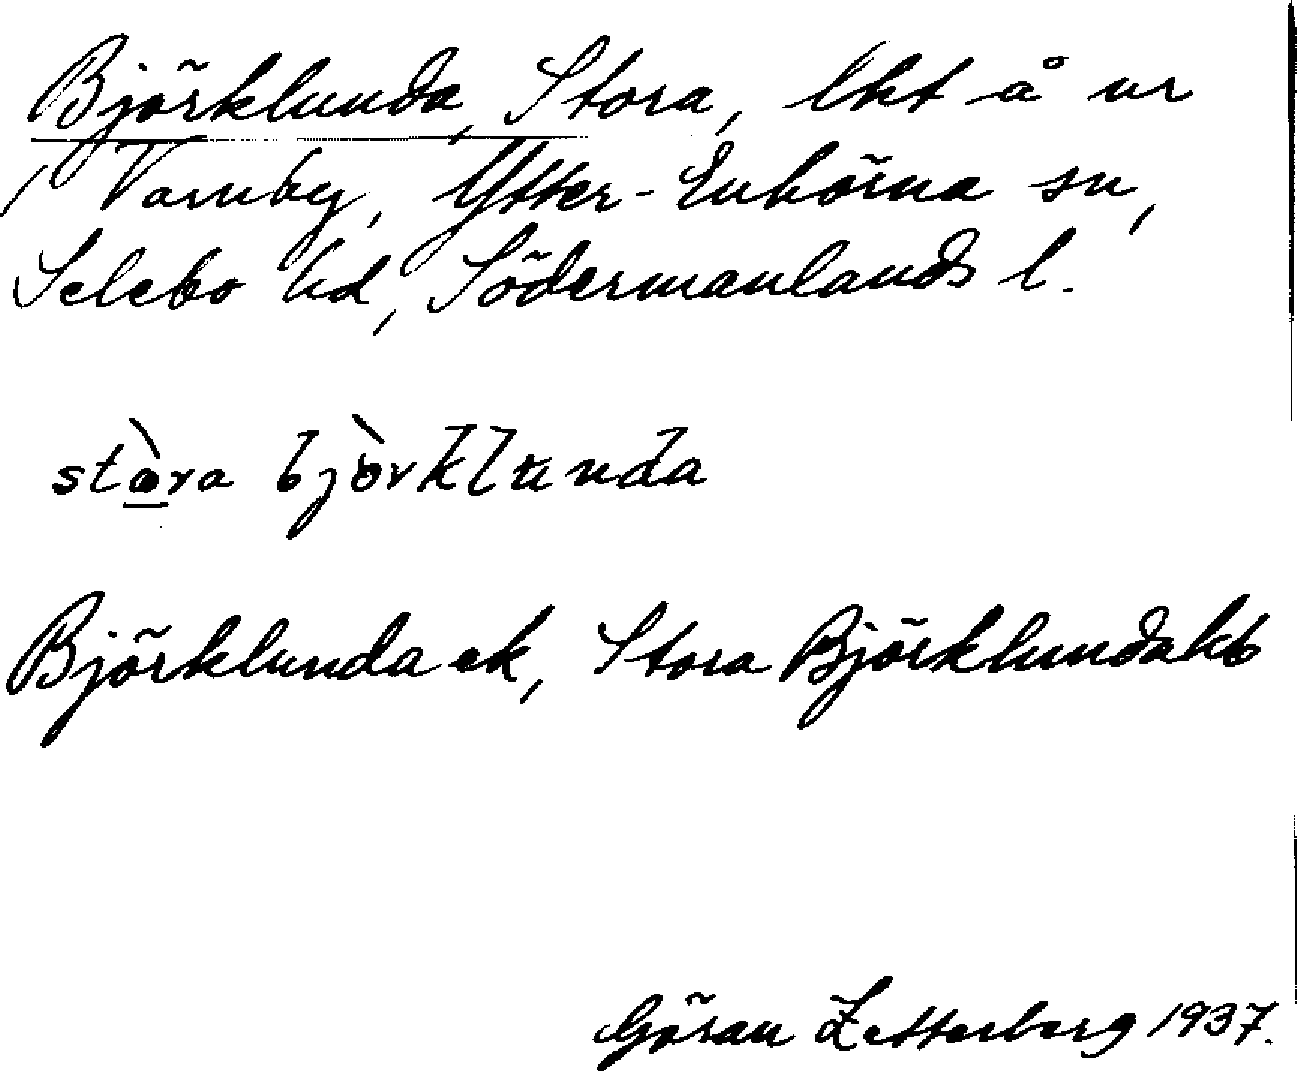 Björklunda, Stora, lht å nr
1 Vamby, Ytter-Enhörna sn,
Selebo hd, Södermanlands l.
stòra bjòrklunda
Björklunda ek, Stora Björklunda kb
Göran Zetterberg 1937.